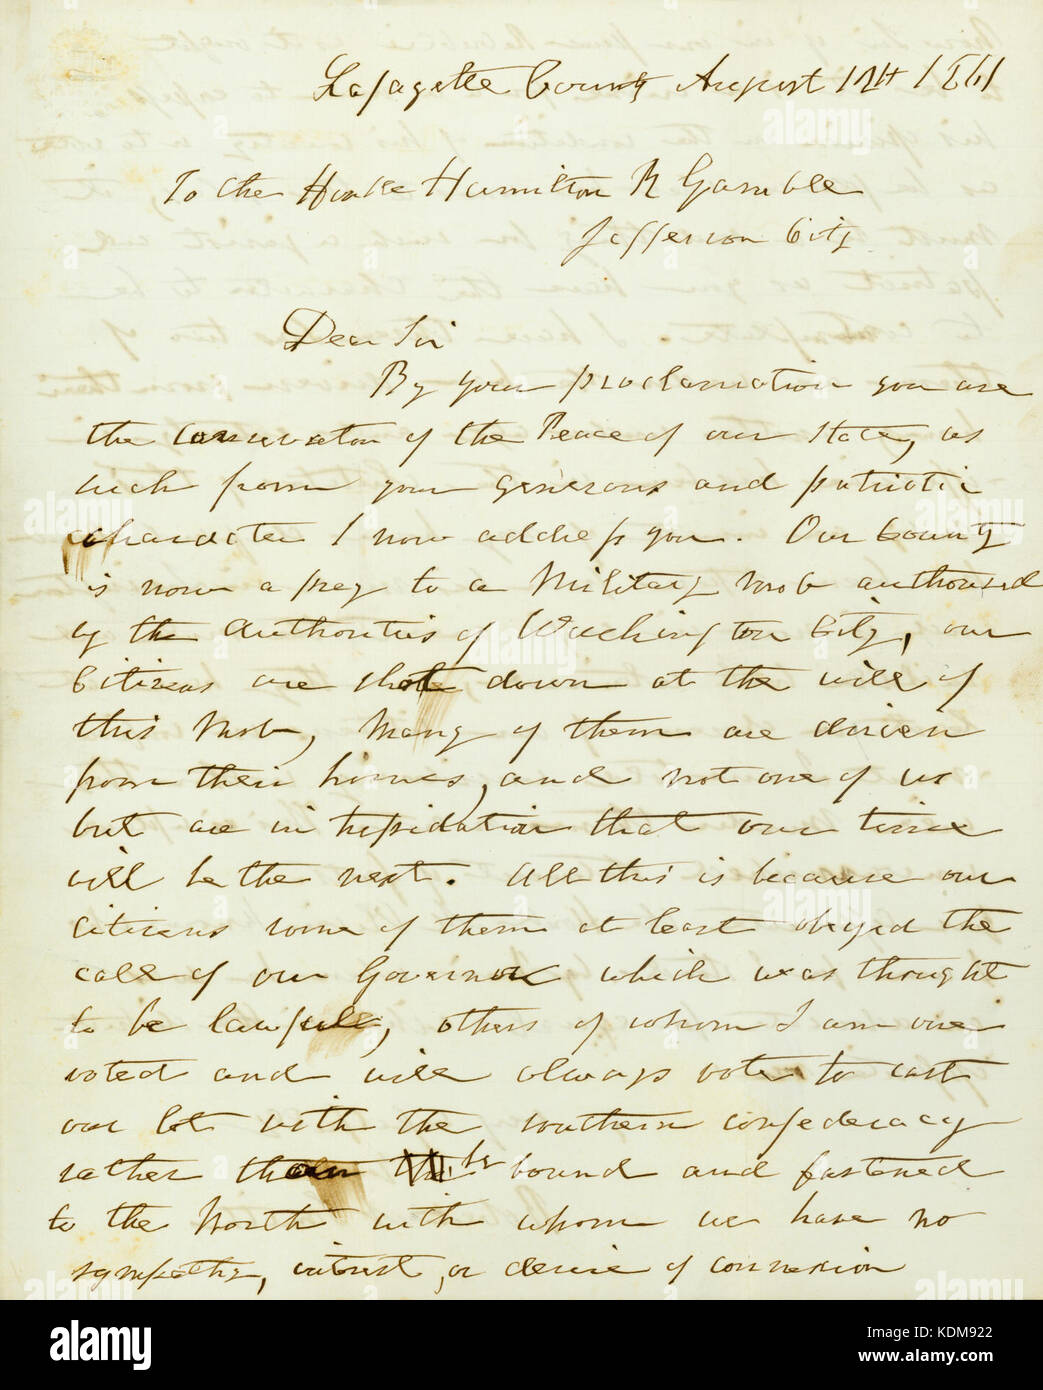 Lafayette County August 12th 1861
To the Honble Hamilton R Gamble
Jefferson City
Dear Sir
By your proclamation you are
the conservator of the Peace of our State, as
such from your generous and patriotic
character I now address you. Our County
is now a prey to a Military Mob authorised
by the authorities of Washington City, our
Citizens are shot down at the will of
this Mob, Many of them are driven
from their homes, and not one of us
but are in trepidation that our time
will be the next. All this is because our
citizens some of them at least obeyed the
call of our Governor which was thought
to be lawful, others of whom I am one
voted and will always vote to cast
our lot with the southern confederacy
rather than be bound and fastened
to the North with whom we have no
sympathy, interest, or desire of connexion
alamy
Image ID: KDM922
www.alamy.com